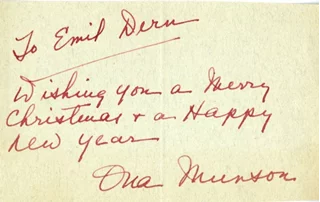 To Emil Dern
Wishing you a Merry
Christmas + a Happy
new year
Ona Munson